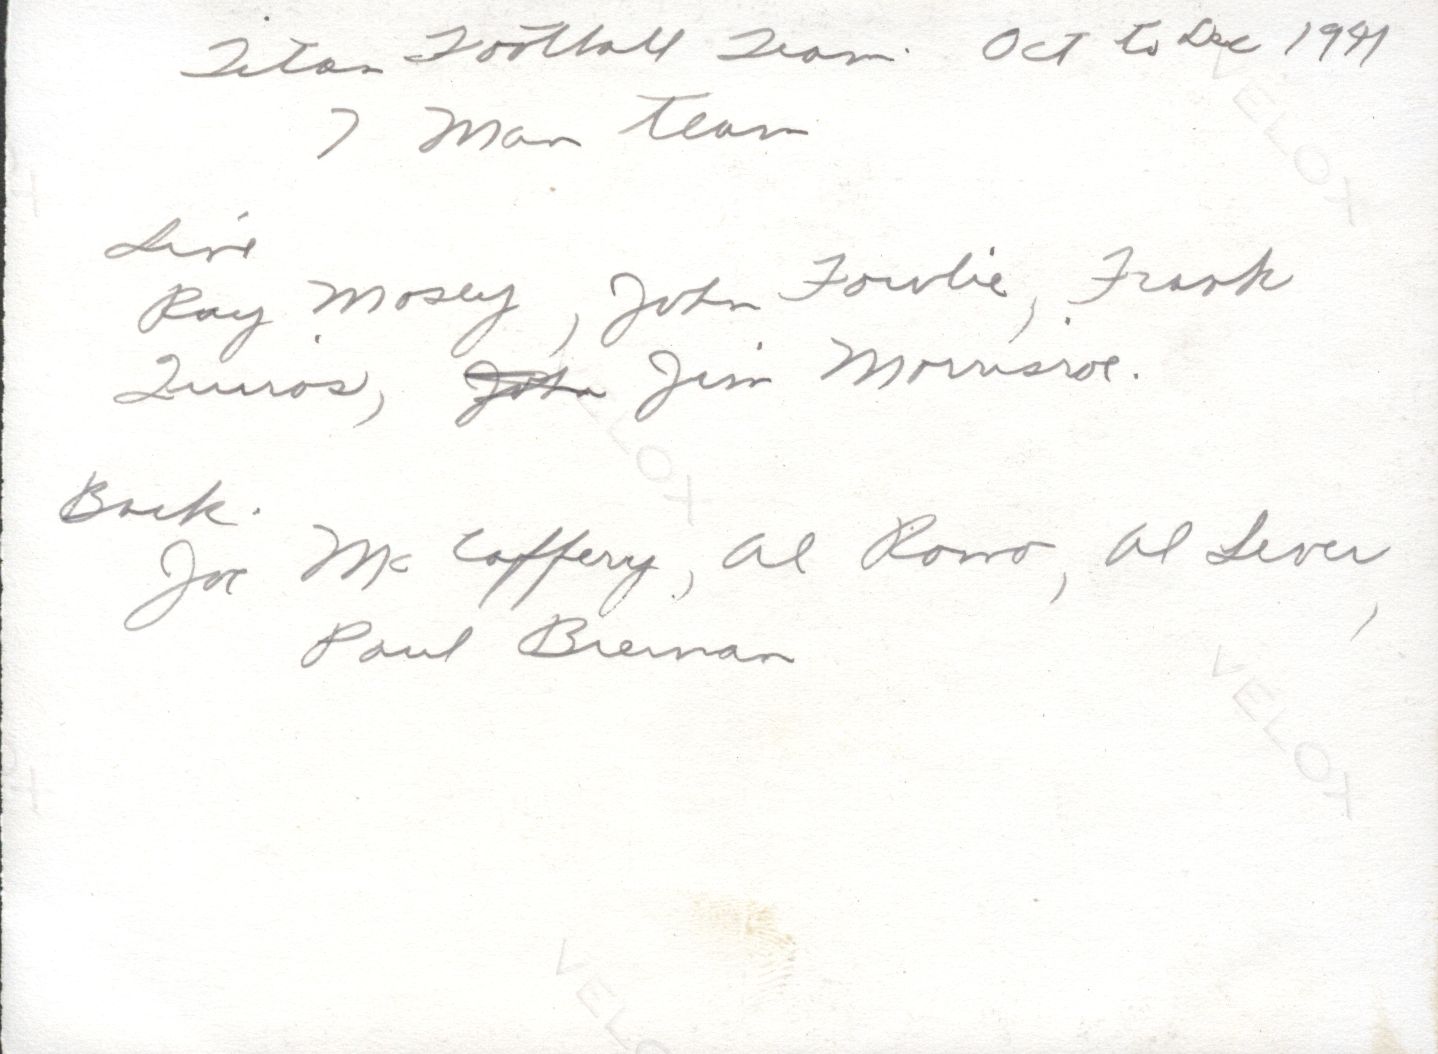 Titan Football Team. Oct to Dec 1941
7 Man Team
Line
Ray Mosey, John Fowlie, Frank
Quiros, John Jim Morrisroe.
Back.
Joe McCaffery, Al Romo, Al Lever,
Paul Brennan
VELOX
VELOX
VELOX
VELO